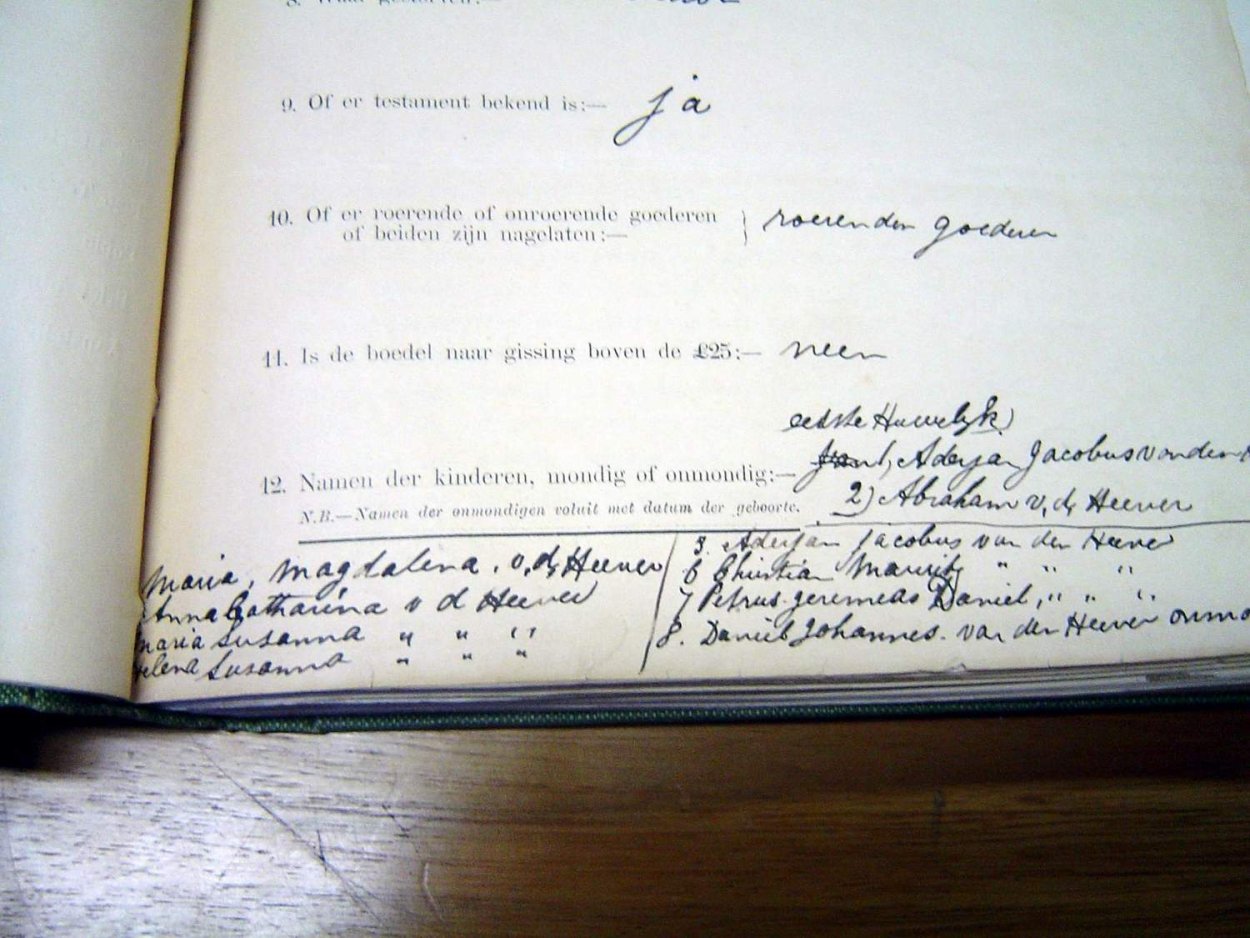 9. Of er testament bekend is:— ja
10. Of er roerende of onroerende goederen
of beiden zijn nagelaten:— } roerenden goederen
11. Is de boedel naar gissing boven de £25:— neen
eerste Huwelyk)
12. Namen der kinderen, mondig of onmondig:— Aderjan Jacobus van den
N.B.—Namen der onmondigen voluit met datum der geboorte. 2) Abraham v, d, Heever
Maria, Magdalena, v, d, Heever
Anna Catharina v d Heever
Maria Susanna " " "
Helena Susanna " " "
Aderjan Jacobus van den Heever
6 Christian Maurits " " "
7 Petrus Jeremeas Daniel, " " "
8. Daniel Johannes. van den Heever